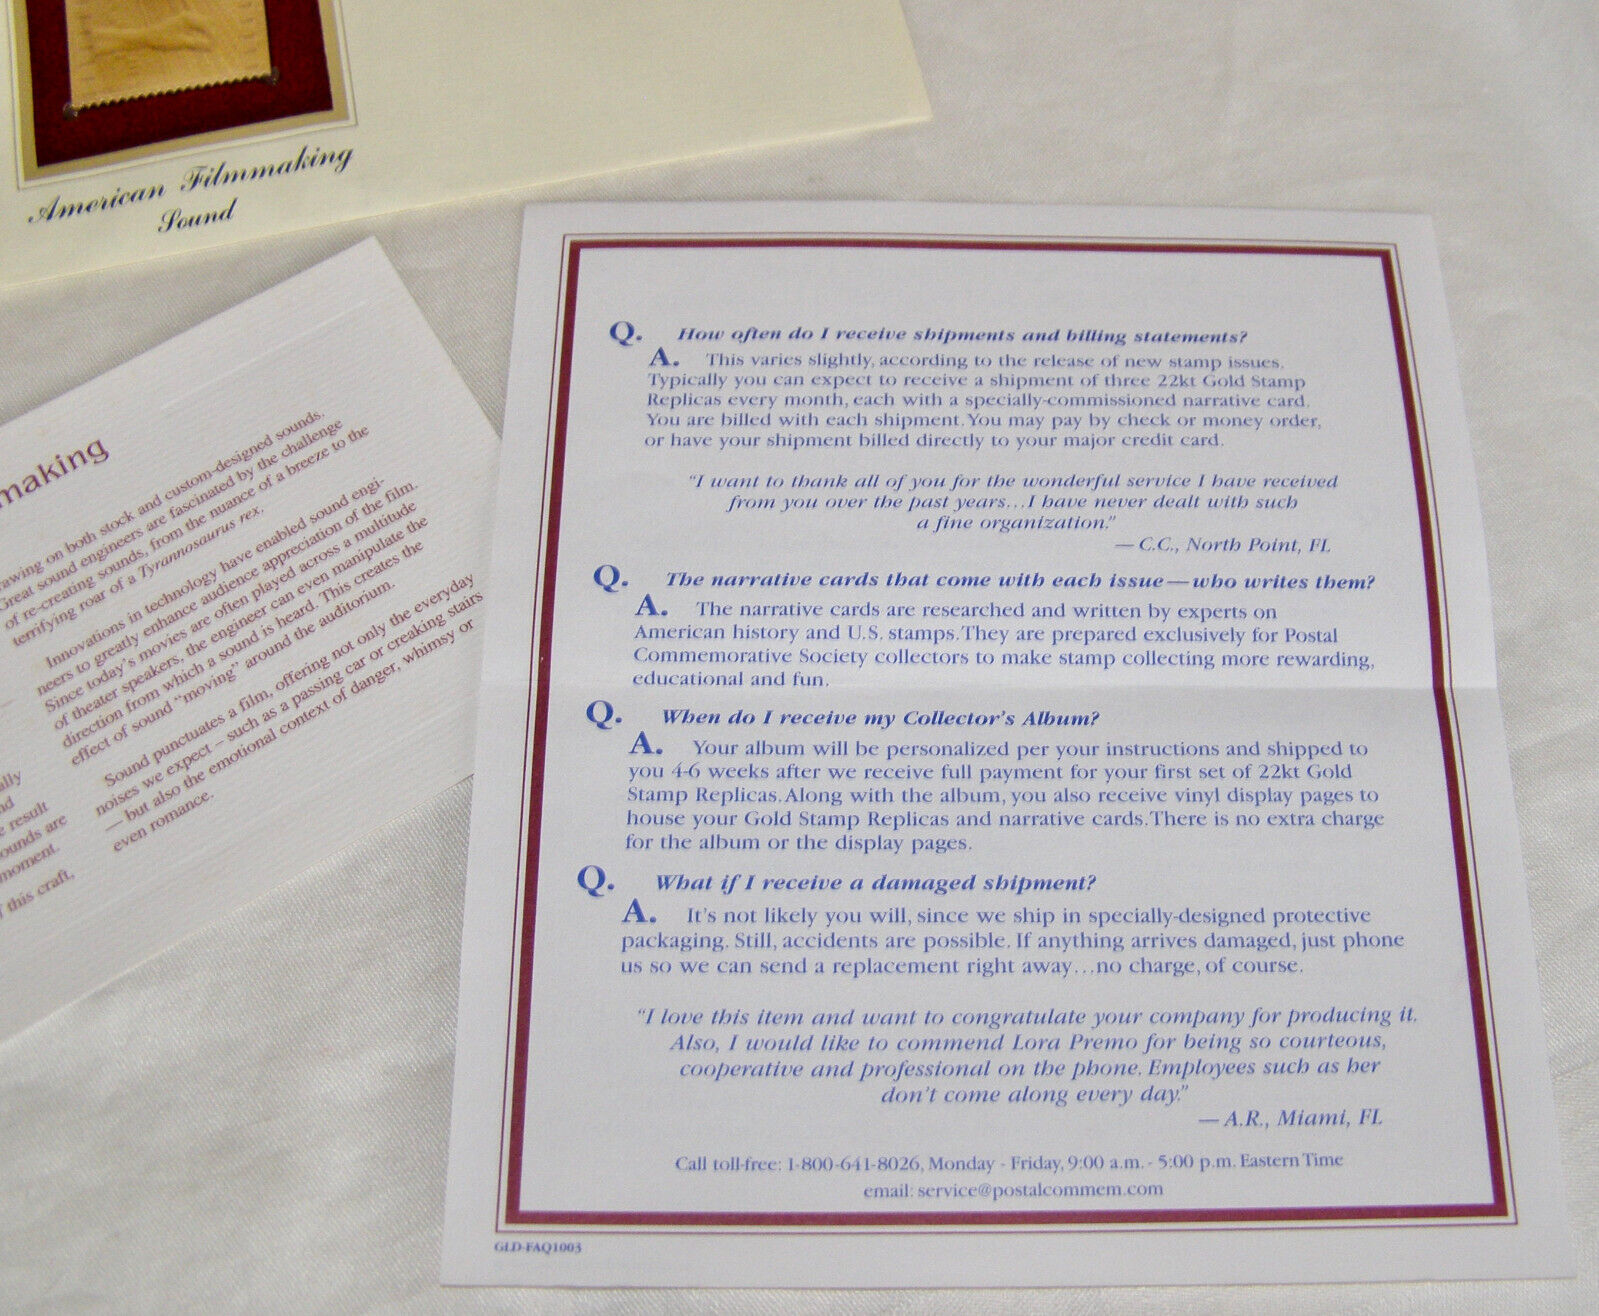 American Filmmaking
Sound
making
awing on both stock and custom-designed sounds.
Great sound engineers are fascinated by the challenge
of re-creating sounds, from the nuance of a breeze to the
terrifying roar of a Tyrannosaurus rex.
Innovations in technology have enabled sound engi-
neers to greatly enhance audience appreciation of the film.
Since today's movies are often played across a multitude
of theater speakers, the engineer can even manipulate the
direction from which a sound is heard. This creates the
effect of sound "moving" around the auditorium.
Sound punctuates a film, offering not only the everyday
noises we expect – such as a passing car or creaking stairs
— but also the emotional context of danger, whimsy or
even romance.
ally
nd
e result
ounds are
moment.
f this craft,
Q. How often do I receive shipments and billing statements?
A. This varies slightly, according to the release of new stamp issues.
Typically you can expect to receive a shipment of three 22kt Gold Stamp
Replicas every month, each with a specially-commissioned narrative card.
You are billed with each shipment. You may pay by check or money order,
or have your shipment billed directly to your major credit card.
"I want to thank all of you for the wonderful service I have received
from you over the past years…I have never dealt with such
a fine organization."
— C.C., North Point, FL
Q. The narrative cards that come with each issue—who writes them?
A. The narrative cards are researched and written by experts on
American history and U.S. stamps. They are prepared exclusively for Postal
Commemorative Society collectors to make stamp collecting more rewarding,
educational and fun.
Q. When do I receive my Collector's Album?
A. Your album will be personalized per your instructions and shipped to
you 4-6 weeks after we receive full payment for your first set of 22kt Gold
Stamp Replicas. Along with the album, you also receive vinyl display pages to
house your Gold Stamp Replicas and narrative cards. There is no extra charge
for the album or the display pages.
Q. What if I receive a damaged shipment?
A. It's not likely you will, since we ship in specially-designed protective
packaging. Still, accidents are possible. If anything arrives damaged, just phone
us so we can send a replacement right away…no charge, of course.
"I love this item and want to congratulate your company for producing it.
Also, I would like to commend Lora Premo for being so courteous,
cooperative and professional on the phone. Employees such as her
don't come along every day."
— A.R., Miami, FL
Call toll-free: 1-800-641-8026, Monday - Friday, 9:00 a.m. - 5:00 p.m. Eastern Time
email: service@postalcommem.com
GLD-FAQ1003